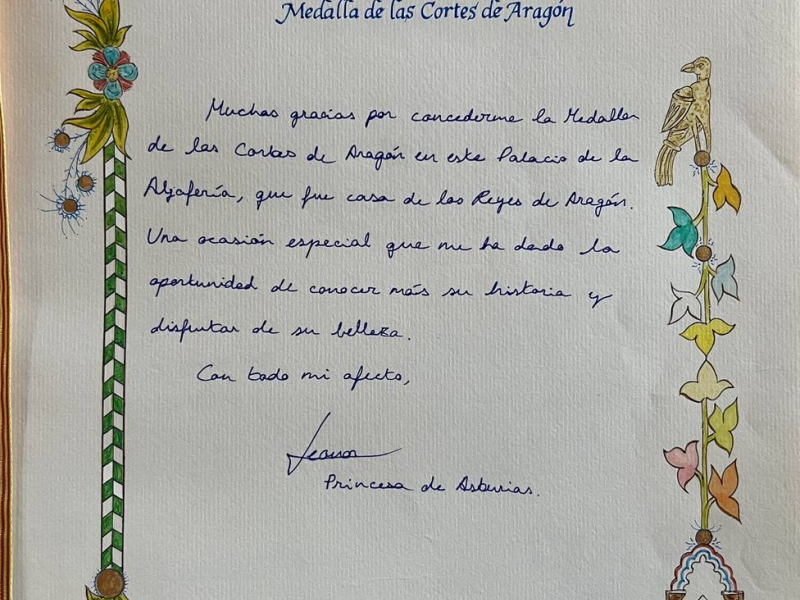 Medalla de las Cortes de Aragón
Muchas gracias por concederme la Medalla
de las Cortes de Aragón en este Palacio de la
Aljafería, que fue casa de los Reyes de Aragón.
Una ocasión especial que me ha dado la
oportunidad de conocer más su historia y
disfrutar de su belleza.
Con todo mi afecto,
Leonor
Princesa de Asturias.